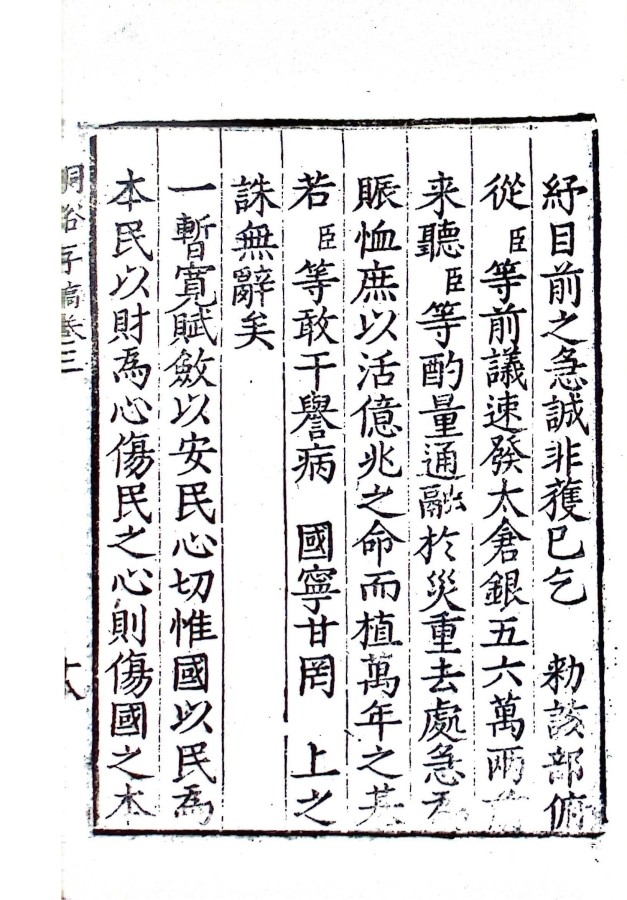 紓目前之急誠非獲已乞　勑該部俯
從臣等前議速發太倉銀五六萬兩
来聽臣等酌量通融於災重去處急
賑恤庶以活億兆之命而植萬年之基
若臣等敢干譽病　國寧甘罔　上之
誅無辭矣
一暫寛賦斂以安民心切惟國以民為
本民以財為心傷民之心則傷國之本
存稿卷三